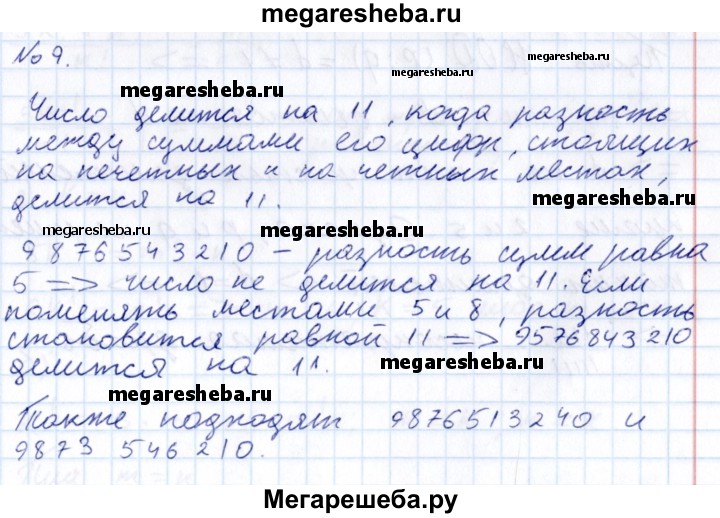 megaresheba.ru
№ 9.
megaresheba.ru
megaresheba.ru
Число делится на 11, когда разность
между суммами его цифр, стоящих
на нечетных и на четных местах,
megaresheba.ru
делится на 11.
megaresheba.ru
megaresheba.ru
9876543210 – разность сумм равна
5 => число не делится на 11. Если
поменять местами 5 и 8, разность
megaresheba.ru
становится равной 11 => 9576843210
megaresheba.ru
делится на 11.
megaresheba.ru
Также подходят 9876513240 и
9873546210.
megaresheba.ru
megaresheba.ru
Мегарешеба.ру